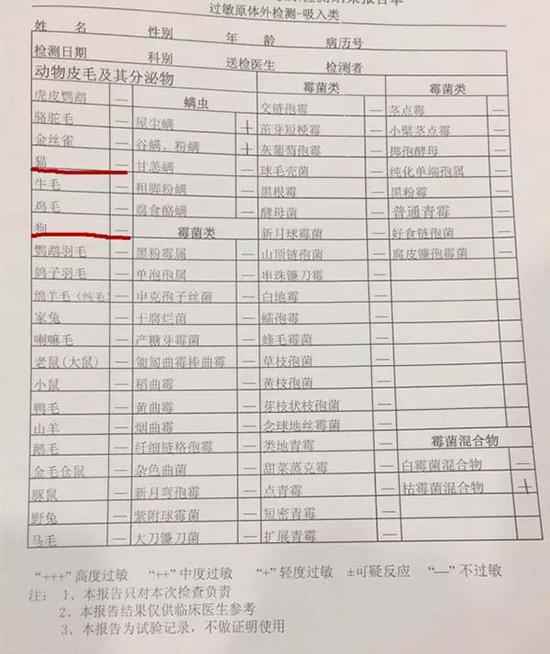 过敏原体外检测-吸入类
姓 名 性别 年 龄 病历号
检测日期 科别 送检医生 检测者
动物皮毛及其分泌物 霉菌类 霉菌类
虎皮鹦鹉 — 螨虫 交链孢霉 — 茎点霉 —
骆驼毛 — 屋尘螨 + 茁芽短梗霉 — 小檗茎点霉 —
金丝雀 — 谷螨，粉螨 + 灰葡萄孢霉 — 掷孢酵母 —
猫 — 甘羡螨 — 球毛壳菌 — 纯化单端孢属 —
牛毛 — 粗脚粉螨 — 黑根霉 — 黑粉霉 —
鸡毛 — 腐食酪螨 — 酵母菌 — 普通青霉 —
狗 — 霉菌类 新月球霉菌 — 好食链孢菌 —
鹦鹉羽毛 — 黑粉霉属 — 山顶链孢菌 — 腐皮镰孢霉菌 —
鸽子羽毛 — 单孢孢属 — 串珠镰刀霉 —
绵羊毛(纯毛) — 申克孢子丝菌 — 白地霉 —
家兔 — 干腐烂菌 — 蠕孢霉 —
喇嘛毛 — 产糖芽霉菌 — 蜂毛霉菌 —
老鼠(大鼠) — 匍匐曲霉棒曲霉 — 草枝孢菌 —
小鼠 — 稻曲霉 — 黄枝孢菌 —
鸭毛 — 黄曲霉 — 芽枝状枝孢菌 —
山羊 — 烟曲霉 — 念球地丝霉菌 —
鹅毛 — 纤细链格孢霉 — 类地青霉 — 霉菌混合物
金毛仓鼠 — 杂色曲菌 — 甜菜茎克霉 — 白霉菌混合物 —
豚鼠 — 新月弯孢霉 — 点青霉 — 枯霉菌混合物 +
野兔 — 紫附球霉菌 — 短密青霉 —
马毛 — 大刀镰刀菌 — 扩展青霉 —
“+++”高度过敏 “++”中度过敏 “+”轻度过敏 ±可疑反应 “—”不过敏
注： 1、本报告只对本次检查负责
2、本报告结果仅供临床医生参考
3、本报告为试验记录，不做证明使用